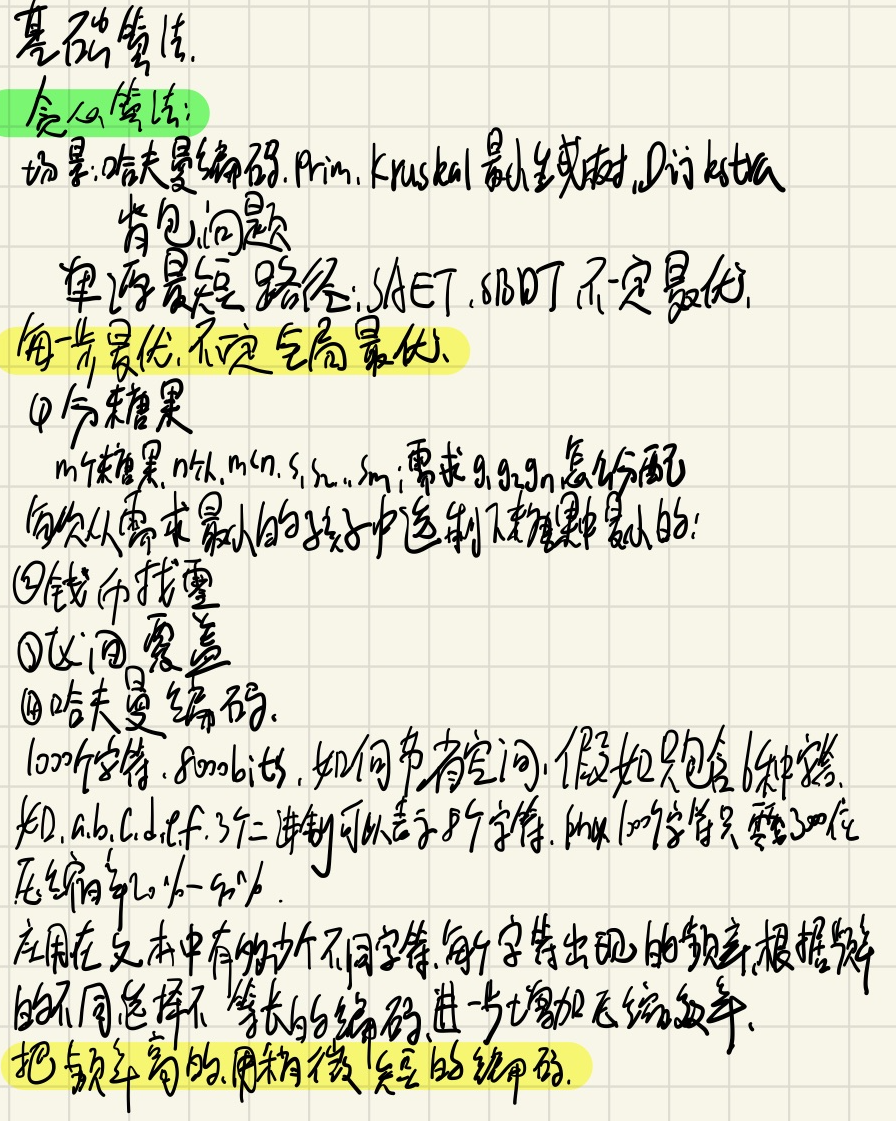 基础算法.
贪心算法:
场景:哈夫曼编码.Prim.Kruskal最小生成树.Dijkstra
背包问题
单源最短路径: 不一定最优.
每一步最优.不一定全局最优.
①分糖果
m个糖果.n个人.m<n.s1s2..sm;需求g1g2gn怎么分配
每次从需求最小的孩子中选剩下糖果中最小的;
②钱币找零
③区间覆盖
④哈夫曼编码.
1000个字符.8000bits.如何节省空间.假如只包含6种字符.
如.a.b.c.d.e.f.3个二进制可以表示8个字符. 1000个字符只需要3000位
压缩率20%-90%.
应用在文本中有多少个不同字符.每个字符出现的频率.根据频率
的不同选择不等长的编码.进一步增加压缩效率.
把频率高的.用稍微短的编码.